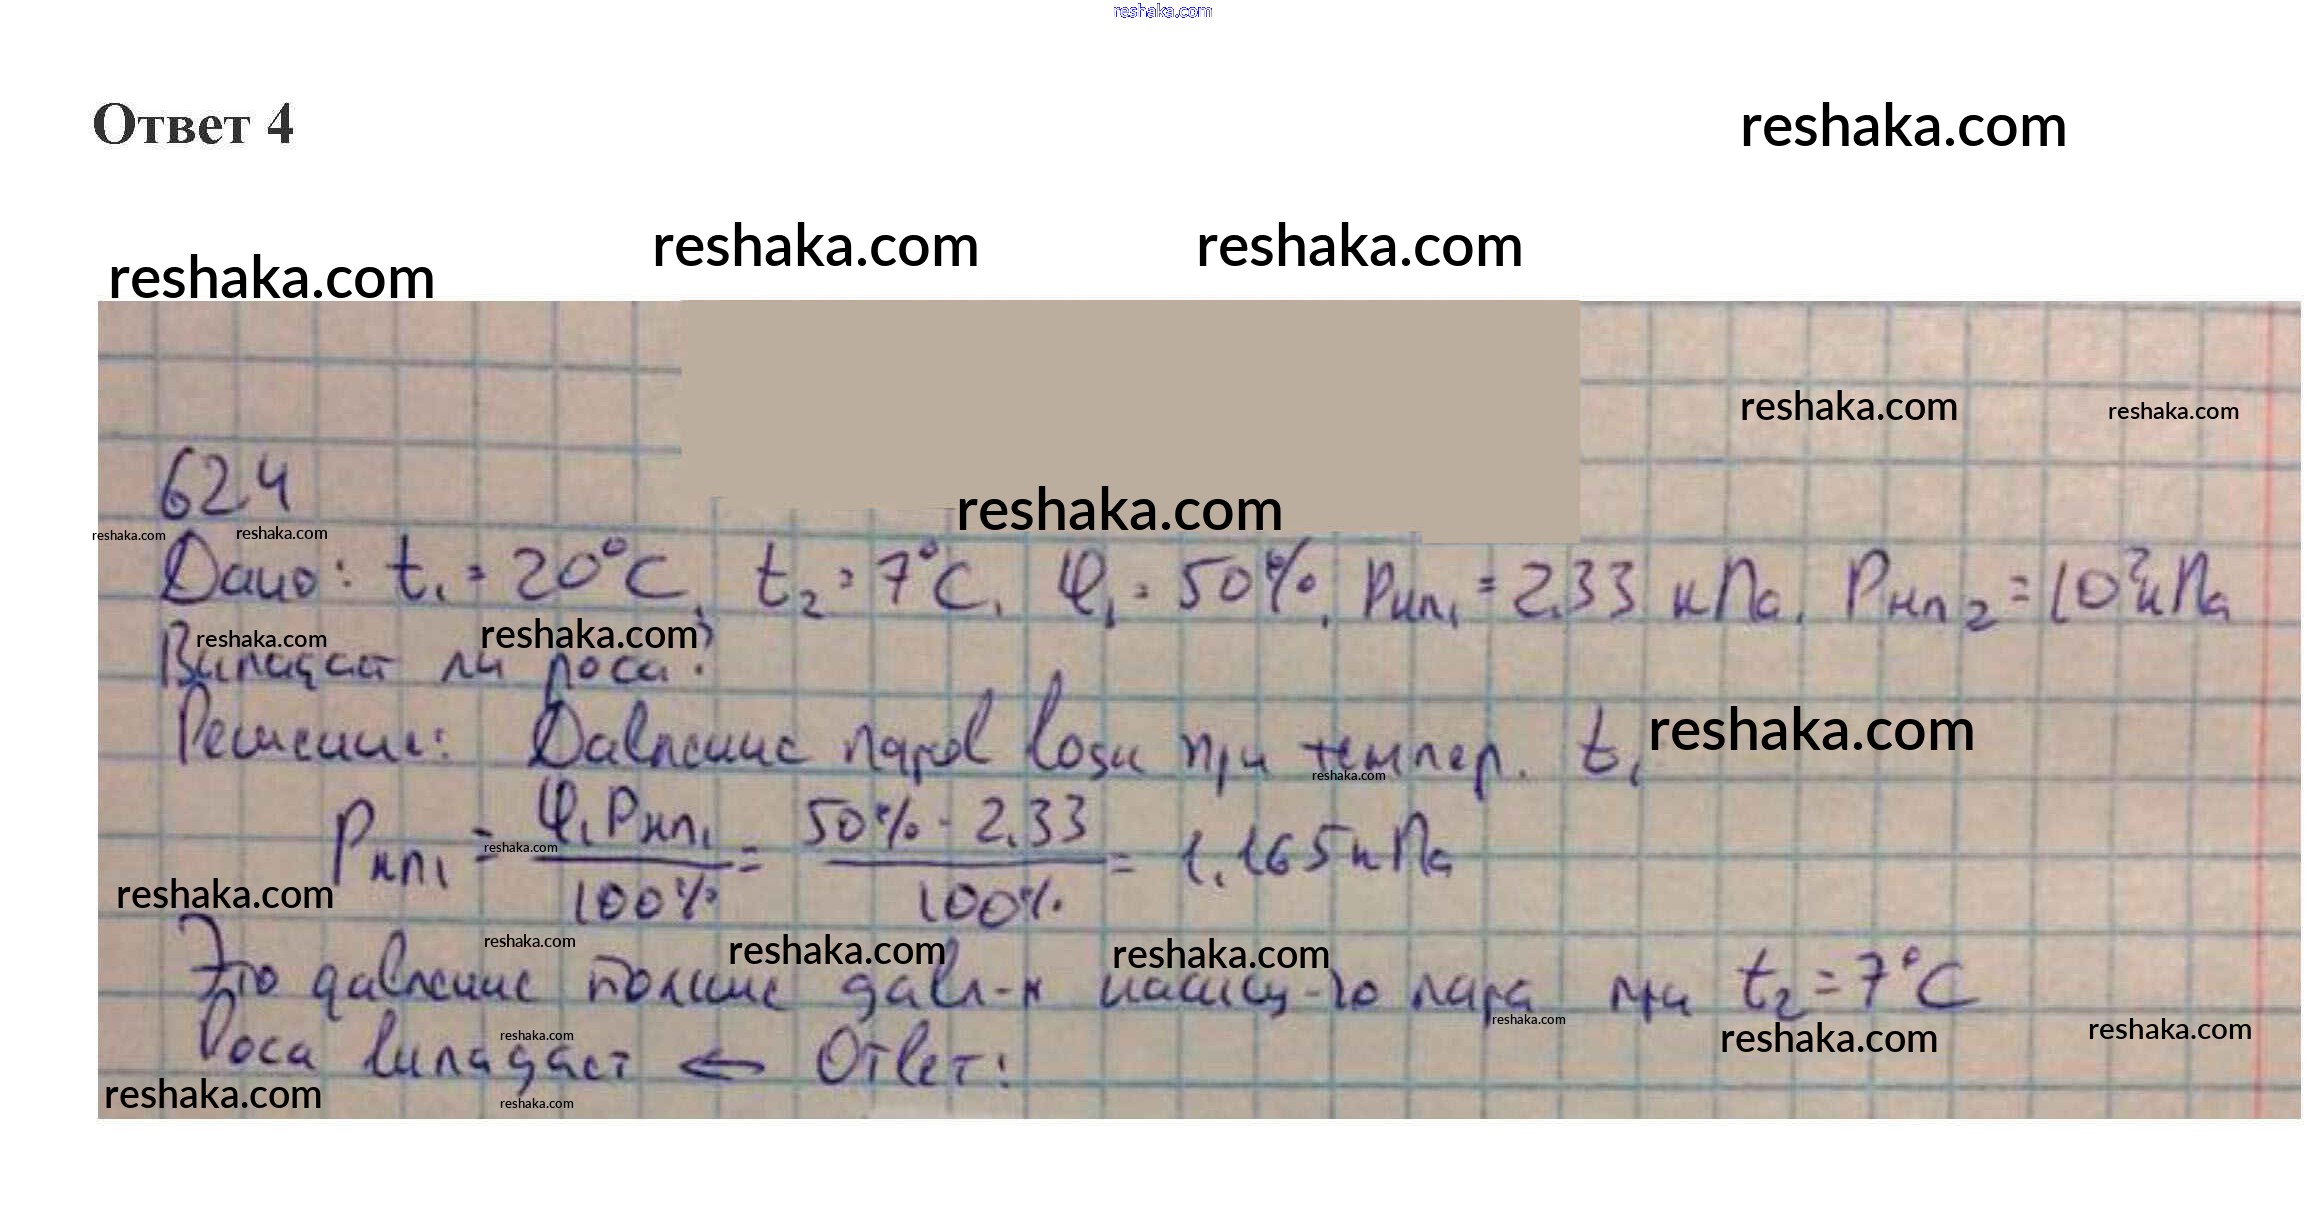 reshaka.com
Ответ 4
reshaka.com
reshaka.com
reshaka.com
reshaka.com
reshaka.com
reshaka.com
624
reshaka.com
reshaka.com
reshaka.com
Дано: t₁ = 20°C, t₂ = 7°C, φ₁ = 50%, Pнп₁ = 2.33 кПа, Pнп₂ = 10² кПа
reshaka.com
reshaka.com
Выпадает ли роса?
Решение: Давление паров воды при темпер. t₁
reshaka.com
reshaka.com
Pнп₁ = φ₁Pнп₁/100% = 50% · 2.33/100% = 1.165 кПа
reshaka.com
reshaka.com
reshaka.com
reshaka.com
reshaka.com
Это давление больше давл-я насыщ-го пара при t₂ = 7°C
reshaka.com
reshaka.com
reshaka.com
Роса выпадает ⇐ Ответ:
reshaka.com
reshaka.com
reshaka.com